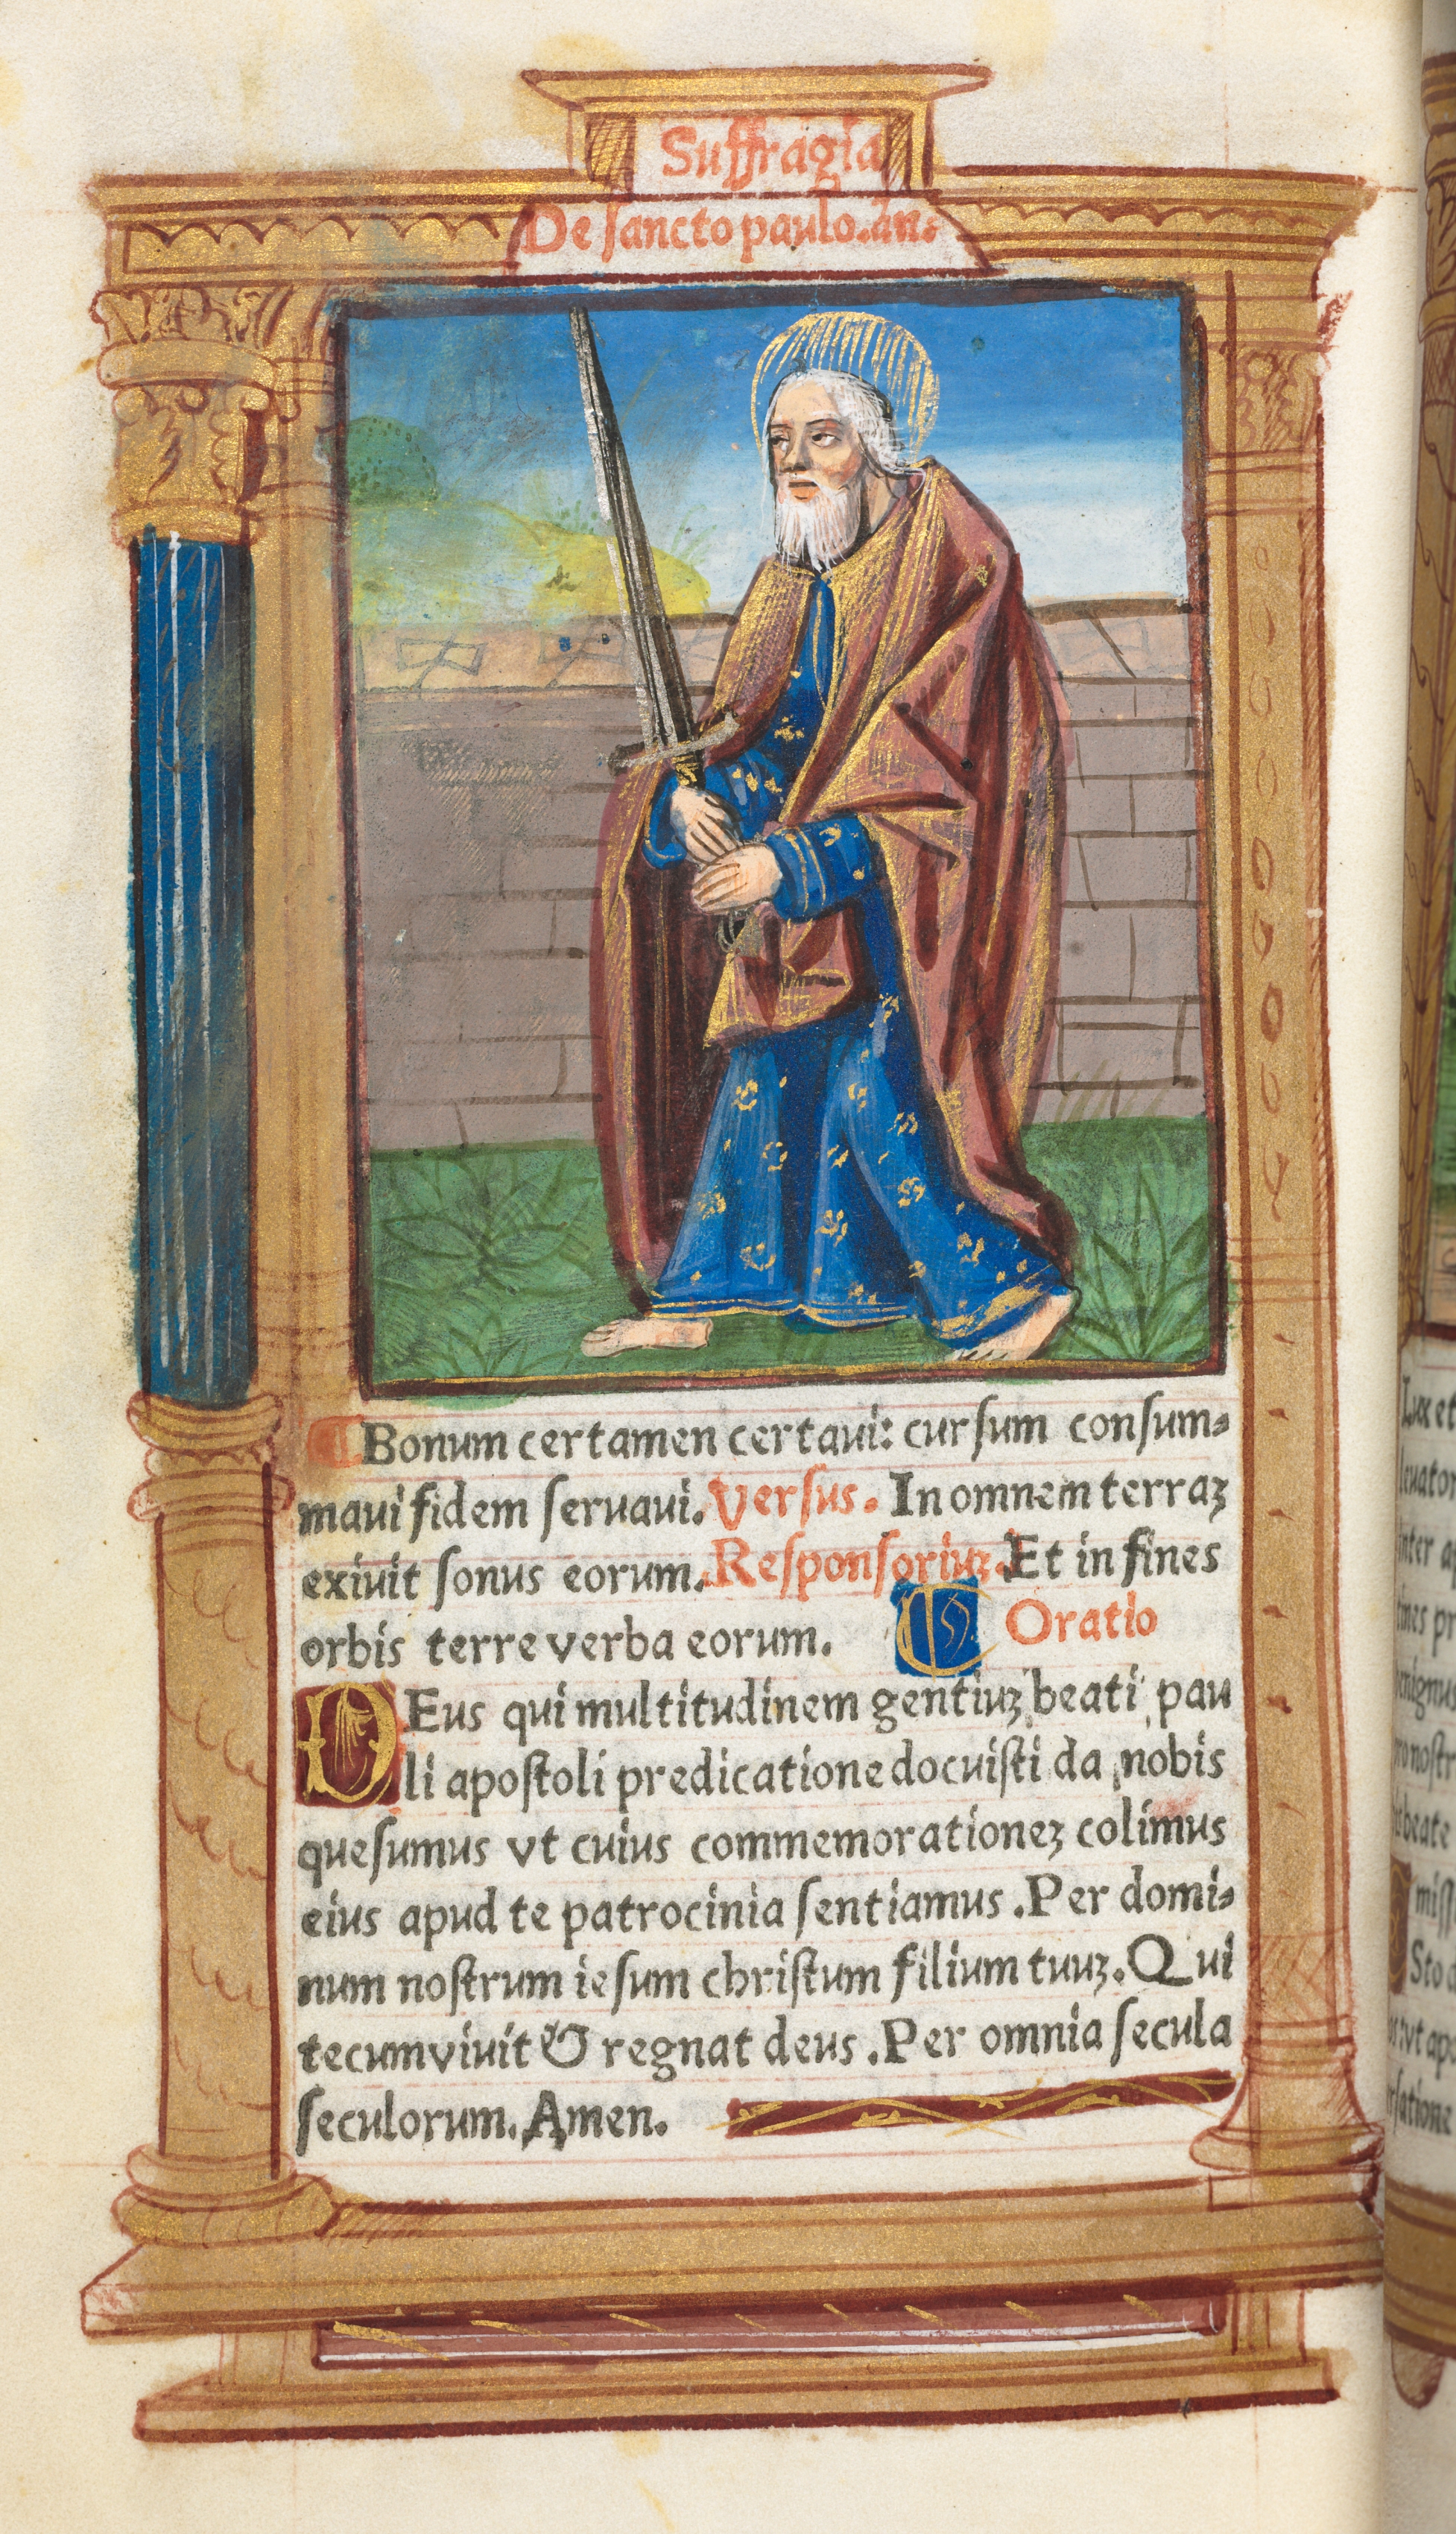 Suffragia
De sancto paulo. an.
Bonum certamen certaui: cursum consum-
maui fidem seruaui. Versus. In omnem terraz
exiuit sonus eorum. Responsoriuz. Et in fines
orbis terre verba eorum. Oratio
DEus qui multitudinem gentiuz beati pau
li apostoli predicatione docuisti da nobis
quesumus vt cuius commemorationez colimus
eius apud te patrocinia sentiamus. Per domi-
num nostrum iesum christum filium tuuz. Qui
tecum viuit & regnat deus. Per omnia secula
seculorum. Amen.
Lux et